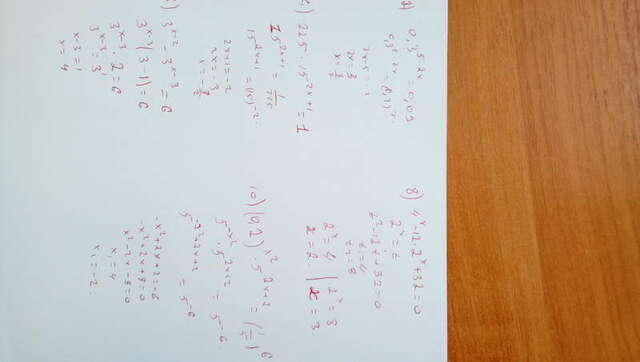 0,3^5-2x = 0,09
0,3^5-2x = (0,3)^2
2x = 3
x = 3/2
225 · 15^2x+1 = 1
15^2x+1 = 1/225
15^2x+1 = (15)^-2
2x+1=-2
2x = -3
x = -3/2
3^x-2 - 3^x-3 = 6
3^x-3(3-1) = 6
3^x-3 · 2 = 6
3^x-3 = 3^1
x-3 = 1
x = 4
8) 4^x-12·2^x+32=0
2^x = t
t^2-12t+32=0
t1=4
t2=8
x=2 | x=3
10) (0,2)^x^2 · 5^2x+2 = (1/5)^6
5^-x^2 · 5^2x+2 = 5^-6
5^-x^2+2x+2 = 5^-6
-x^2+2x+2=-6
-x^2+2x+8=0
x^2-2x-8=0
x1=4
x2=-2